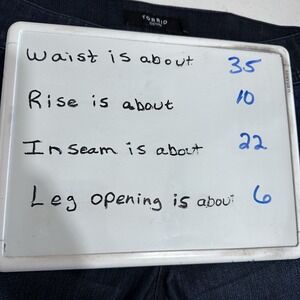 TORRID
Waist is about 35
Rise is about 10
Inseam is about 22
Leg opening is abou 6